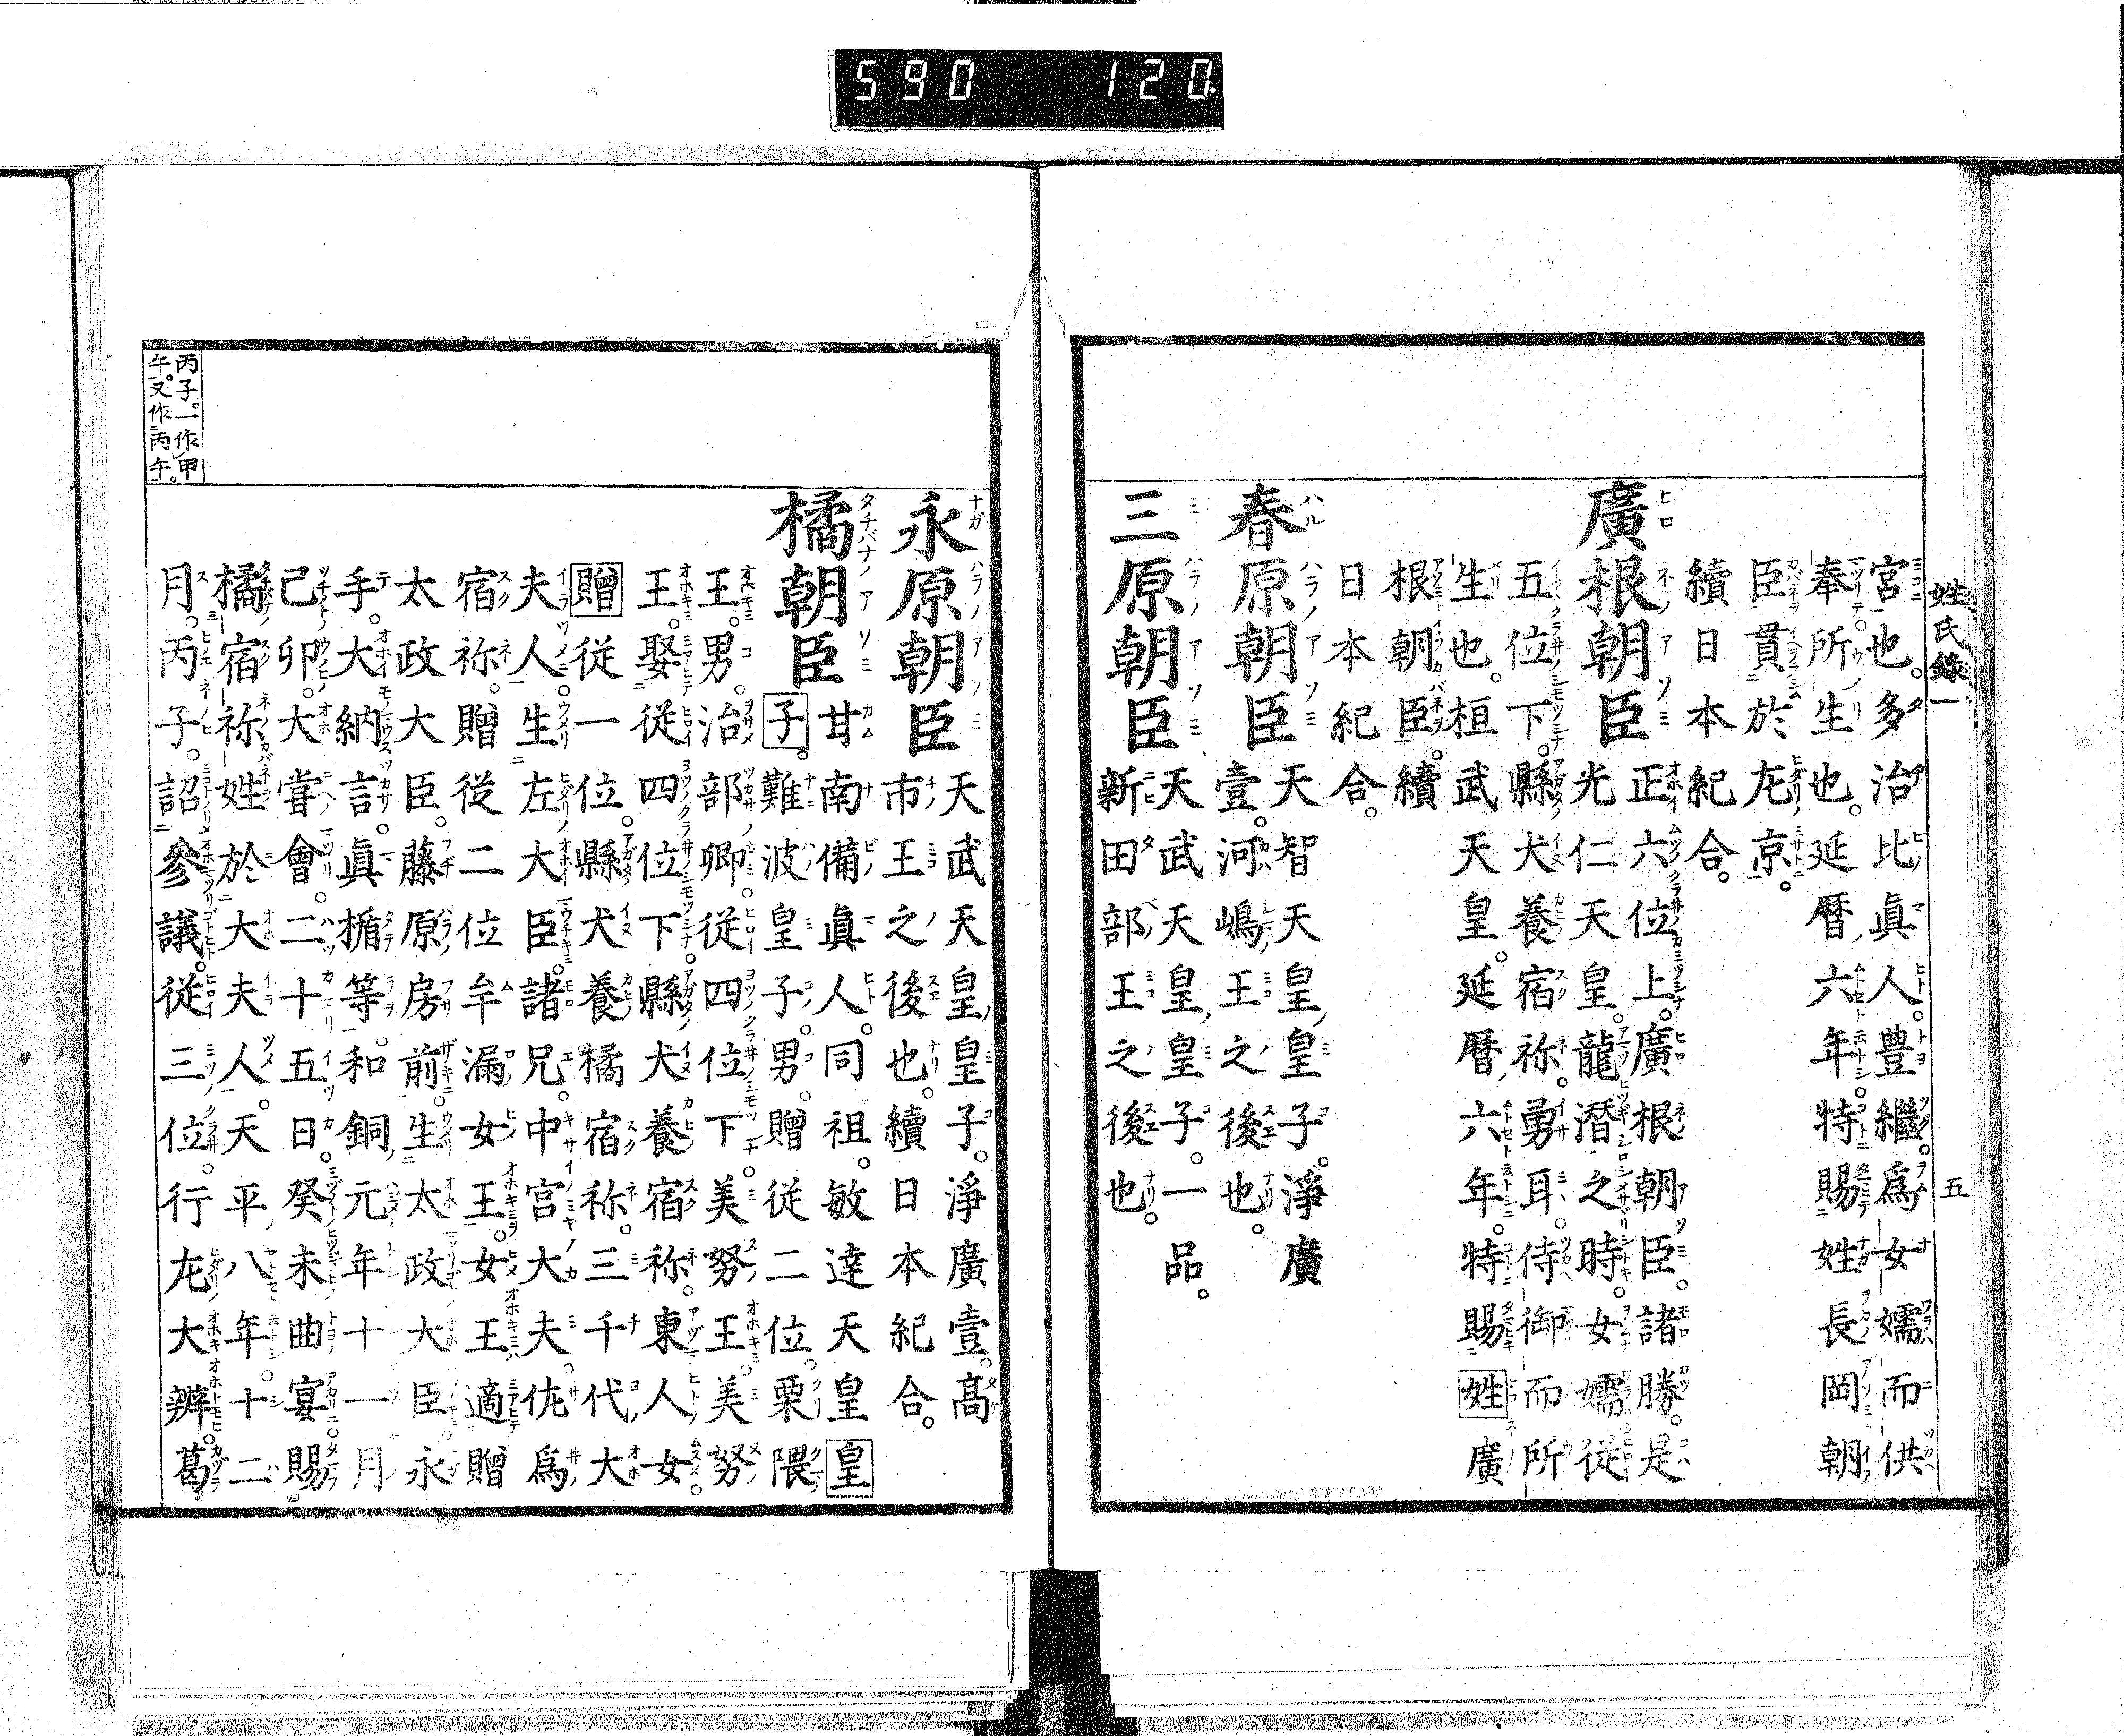 590 120.
姓氏錄一 五
宮也。多治比眞人。豊繼。爲女嬬而供
奉所生也。延暦六年特賜姓長岡朝
臣貫於左京。
續日本紀合。
廣根朝臣 正六位上。廣根朝臣。諸勝。是
光仁天皇。龍潛之時。女嬬從
五位下。縣犬養宿祢。勇耳。侍御而所
生也。桓武天皇。延暦六年。特賜姓廣
根朝臣。續
日本紀合。
春原朝臣 天智天皇皇子。淨廣
壹。河嶋王之後也。
三原朝臣 天武天皇皇子。一品。
新田部王之後也。
永原朝臣 天武天皇皇子。淨廣壹。髙
市王之後也。續日本紀合。
橘朝臣 甘南備眞人。同祖。敏達天皇皇
子。難波皇子。男。贈從二位。栗隈
王。男。治部卿。從四位下美努王。美努
王。娶從四位下縣犬養宿祢。東人女。
贈從一位。縣犬養橘宿祢。三千代大
夫人生左大臣。諸兄。中宮大夫。佐爲
宿祢。贈從二位牟漏女王。女王適贈
太政大臣。藤原房前。生太政大臣永
手。大納言。眞楯等。和銅元年十一月
己卯。大嘗會。二十五日。癸未曲宴賜
橘宿祢姓於大夫人。天平八年十二
月。丙子。詔參議。從三位。行左大辨。葛
丙子。一作甲
午。又作丙午。